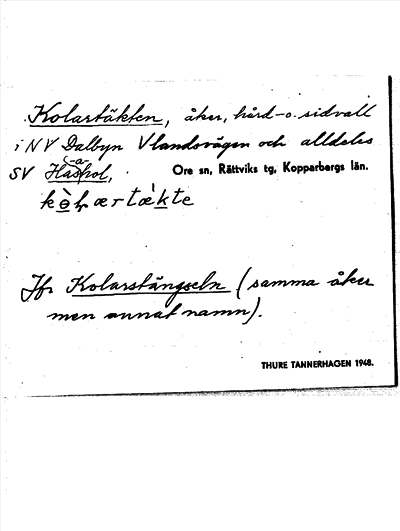 Kolartäkten, åker, hård- o. sidvall
i NV Dalbyn V landsvägen och alldeles
SV Hashol,
-a-
Ore sn, Rättviks tg, Kopparbergs län.
Jfr Kolarstängseln (samma åker
men annat namn).
THURE TANNERHAGEN 1948.